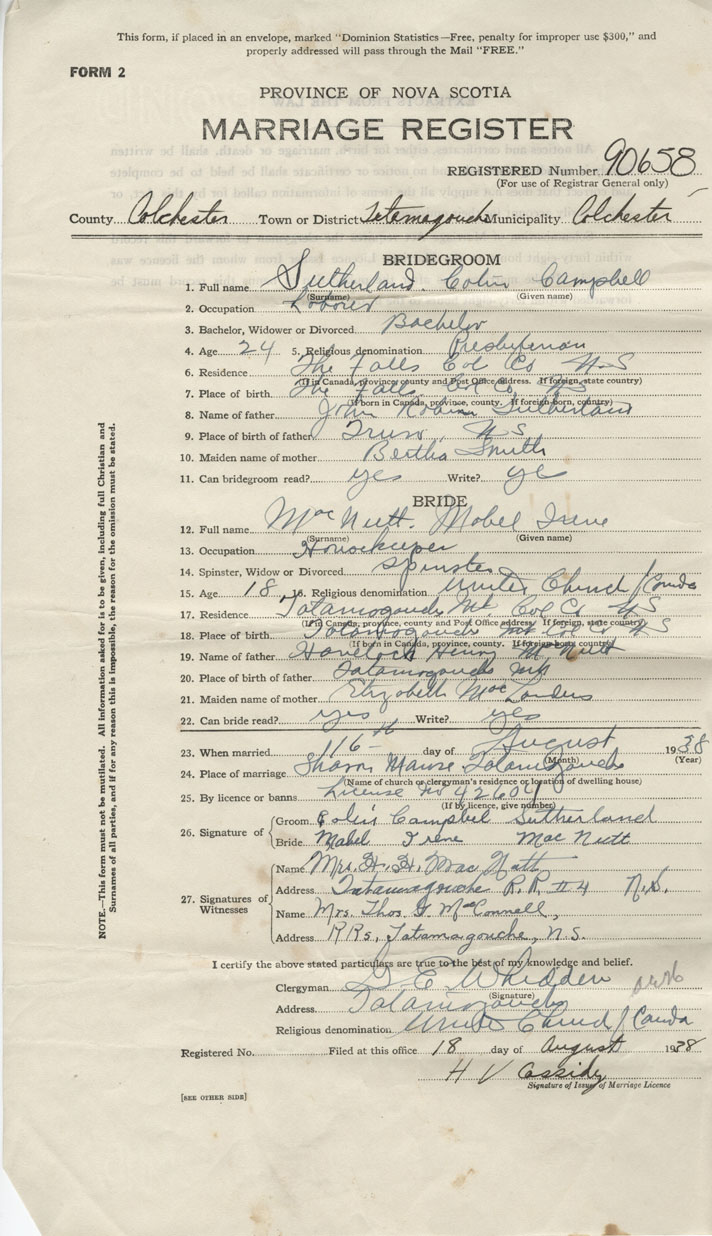 This form, if placed in an envelope, marked "Dominion Statistics—Free, penalty for improper use $300," and
properly addressed will pass through the Mail "FREE."
FORM 2
PROVINCE OF NOVA SCOTIA
MARRIAGE REGISTER
REGISTERED Number 90658
(For use of Registrar General only)
County Colchester Town or District Tatamagouche Municipality Colchester
BRIDEGROOM
1. Full name Sutherland Colin Campbell
(Surname) (Given name)
2. Occupation Laborer
3. Bachelor, Widower or Divorced Bachelor
4. Age 24 5. Religious denomination Presbyterian
6. Residence The Falls Col Co N-S
(If in Canada, province, county and Post Office address. If foreign, state country)
7. Place of birth The Falls Col Co N S
(If born in Canada, province, county. If foreign-born, country)
8. Name of father John Sutherland
9. Place of birth of father Truro, N S
10. Maiden name of mother Bertha Smith
11. Can bridegroom read? yes Write? yes
BRIDE
12. Full name MacNutt. Mabel Irene
(Surname) (Given name)
13. Occupation Housekeeper
14. Spinster, Widow or Divorced Spinster
15. Age 18 16. Religious denomination United Church / Canada
17. Residence Tatamagouche Mt Col Co N S
(If in Canada, province, county and Post Office address. If foreign, state country)
18. Place of birth Tatamagouche Mt Col Co N S
(If born in Canada, province, county. If foreign-born country)
19. Name of father Havelock Henry McNutt
20. Place of birth of father Tatamagouche Mt
21. Maiden name of mother Elizabeth Mac
22. Can bride read? yes Write? yes
23. When married 16th day of August 1938
(Month) (Year)
24. Place of marriage Sharon Manse Tatamagouche
(Name of church or clergyman's residence or location of dwelling house)
25. By licence or banns License No 42604
(If by licence, give number)
26. Signature of
Groom Colin Campbel Sutherland
Bride Mabel Irene MacNutt
27. Signatures of Witnesses
Name Mrs. H. H. MacNutt
Address Tatamagouche R.R #4 N.S.
Name Mrs. Thos. G. McConnell,
Address RR5, Tatamagouche, N.S.
I certify the above stated particulars are true to the best of my knowledge and belief.
Clergyman G E Whidden
(Signature)
Address Tatamagouche
Religious denomination United Church / Canada
Registered No. Filed at this office 18 day of August 1938
H V Cassidy
Signature of Issuer of Marriage Licence
[SEE OTHER SIDE]
NOTE.—This form must not be mutilated. All information asked for is to be given, including full Christian and
Surnames of all parties, and if for any reason this is impossible, the reason for the omission must be stated.